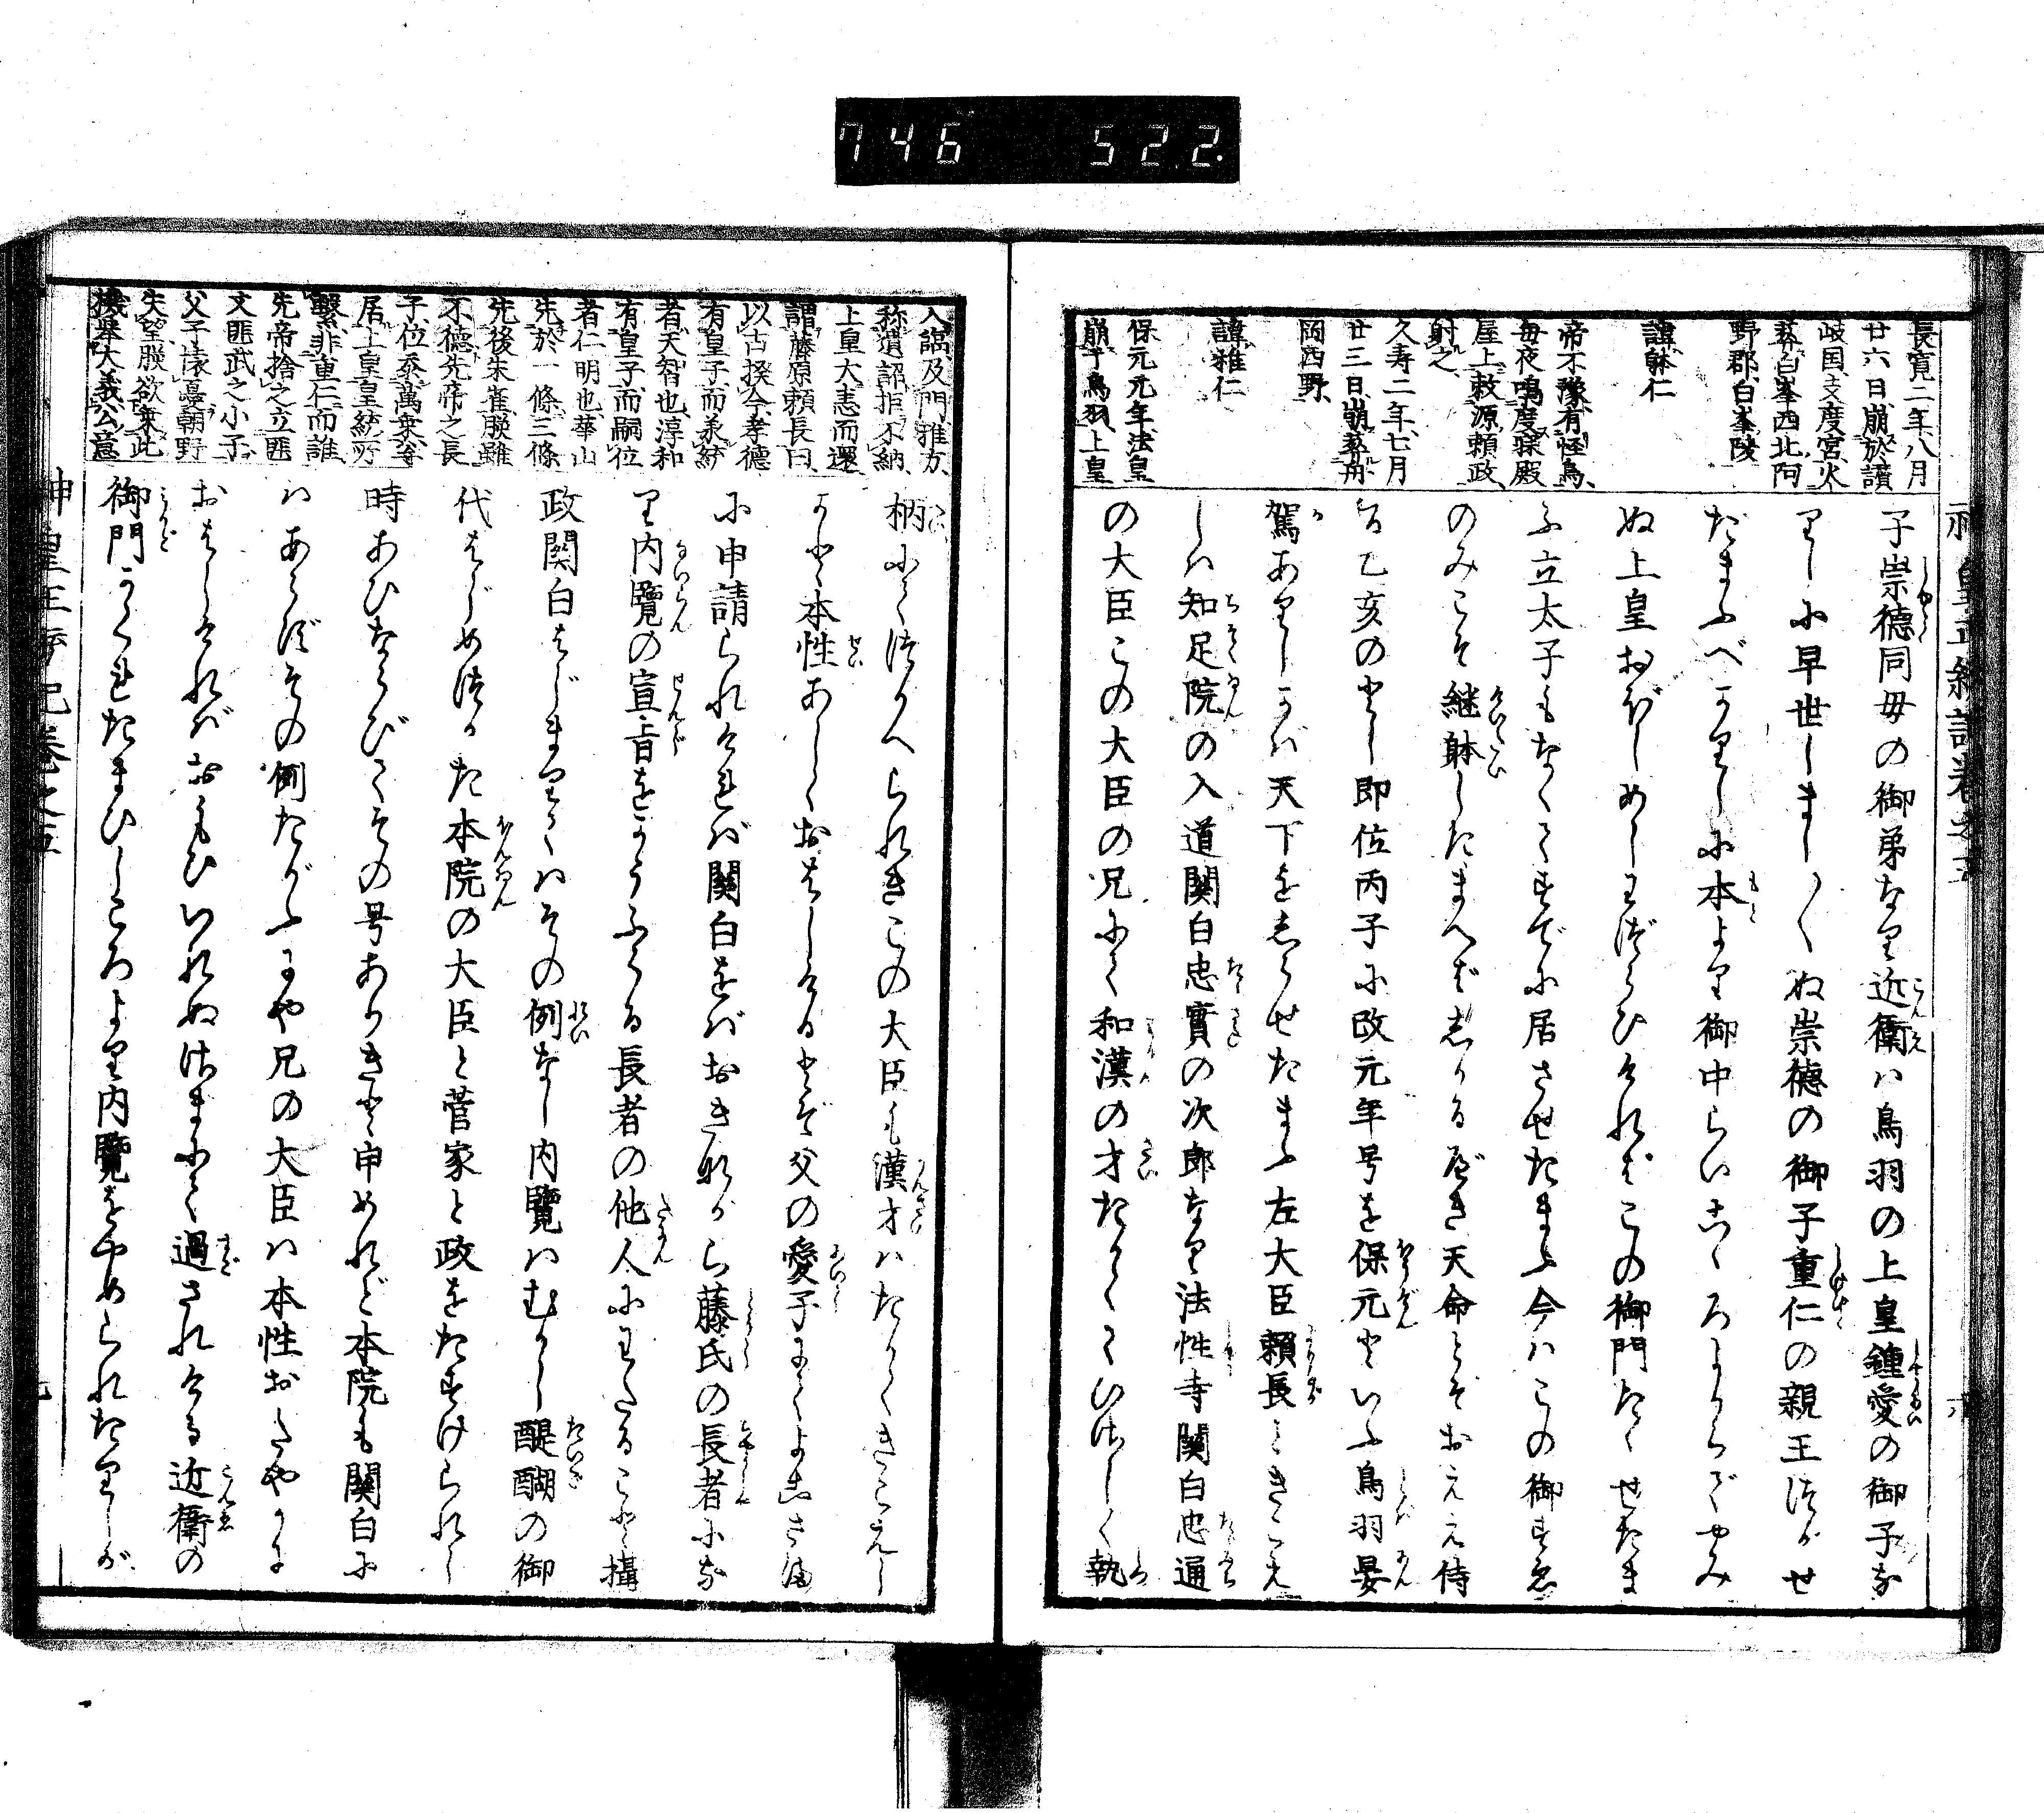 746 522.
長寛二年八月
廿六日崩於讃
岐国支度宮火
葬白峯西北阿
野郡白峯陵
諱躰仁
帝不豫有怪鳥
毎夜鳴度寐殿
屋上敕源頼政
射之
久寿二年七月
廿三日崩葬舟
岡西野
諱雅仁
保元元年法皇
崩于鳥羽上皇
子崇徳同母の御弟なり近衛ハ鳥羽の上皇鍾愛の御子な
りしに早世しまし〱ぬ崇徳の御子重仁の親王つかせ
たまふべかりしに本より御中らひこゝろよからでやみ
ぬ上皇おぼしめしわづらひけれどこの御門たゝせたま
ふ立太子もなくてすでに居させたまふ今ハこの御すゑ
のみこそ継躰したまへばしかるべき天命とぞおえ侍
る乙亥のとし即位丙子に改元年号を保元といふ鳥羽晏
駕ありしかバ天下をしらせたまふ左大臣頼長ときこえ
しハ知足院の入道関白忠實の次郎なり法性寺関白忠通
の大臣この大臣の兄にて和漢の才たかくてひさしく執
入臨及門雅方
称遺詔拒不納
上皇大恚而還
謂藤原頼長曰
以古揆今孝德
有皇子而承統
者天智也淳和
有皇子而嗣位
者仁明也華山
先於一條三條
先後朱雀朕雖
不德先帝之長
子位泰萬乗今
居上皇皇統所
繋非重仁而誰
先帝捨之立匪
文匪武之小子
父子懐憂朝野
失望朕欲乗此
機舉大義公意
柄にてつかへられきこの大臣も漢才ハたかくきこえし
かど本性あしくおはしけるとぞ父の愛子にてよこさま
に申請られけれバ関白をバおきながら藤氏の長者にな
り内覽の宣旨をかうふける長者の他人にわたること攝
政関白はじまりてハその例なし内覽ハむかし醍醐の御
代はじめつかた本院の大臣と菅家と政をたすけられし
時あひならびてその号ありきと申めれど本院も関白に
ハあらずその例たがふにや兄の大臣ハ本性おたやかに
おはしけれバおもひいれぬさまにて過されける近衛の
御門かくれたまひしころより内覽をやめられたりしが